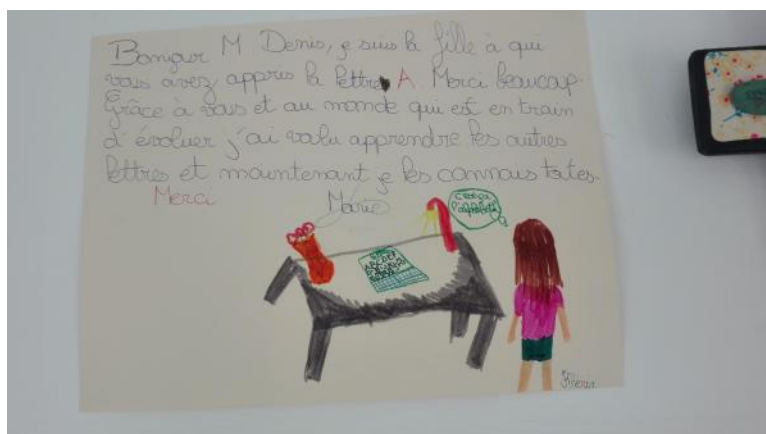 Bonjour M Denis, je suis la fille à qui
vous avez appris la lettre A. Merci beaucoup.
Grâce à vous et au monde qui est en train
d'évoluer j'ai voulu apprendre les autres
lettres et maintenant je les connais toutes.
Merci
Marie
c'est ça
l'alphabet